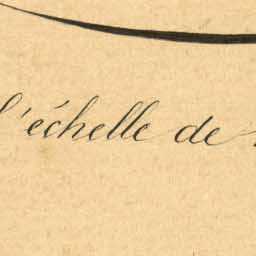 l'échelle de